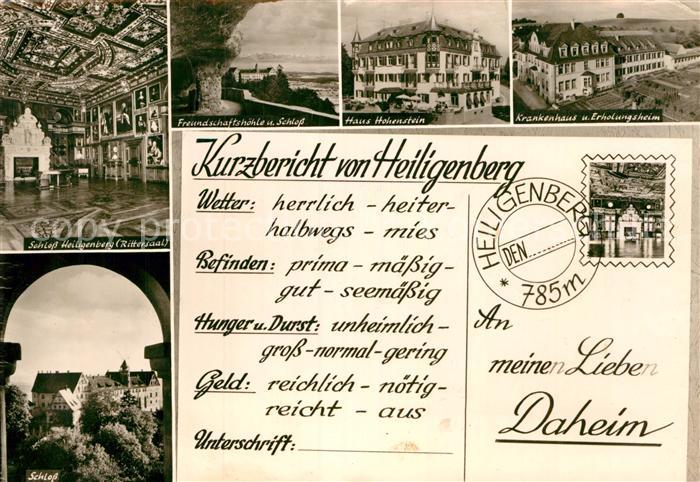 Freundschaftshöhle u. Schloß
Haus Hohenstein
Krankenhaus u. Erholungsheim
Schloß Heiligenberg (Rittersaal)
Schloß
Kurzbericht von Heiligenberg
Wetter: herrlich - heiter-
halbwegs - mies
Befinden: prima - mäßig-
gut - seemäßig
Hunger u. Durst: unheimlich-
groß-normal-gering
Geld: reichlich - nötig-
reicht - aus
Unterschrift:
HEILIGENBERG
DEN
* 785m
An
meinen Lieben
Daheim